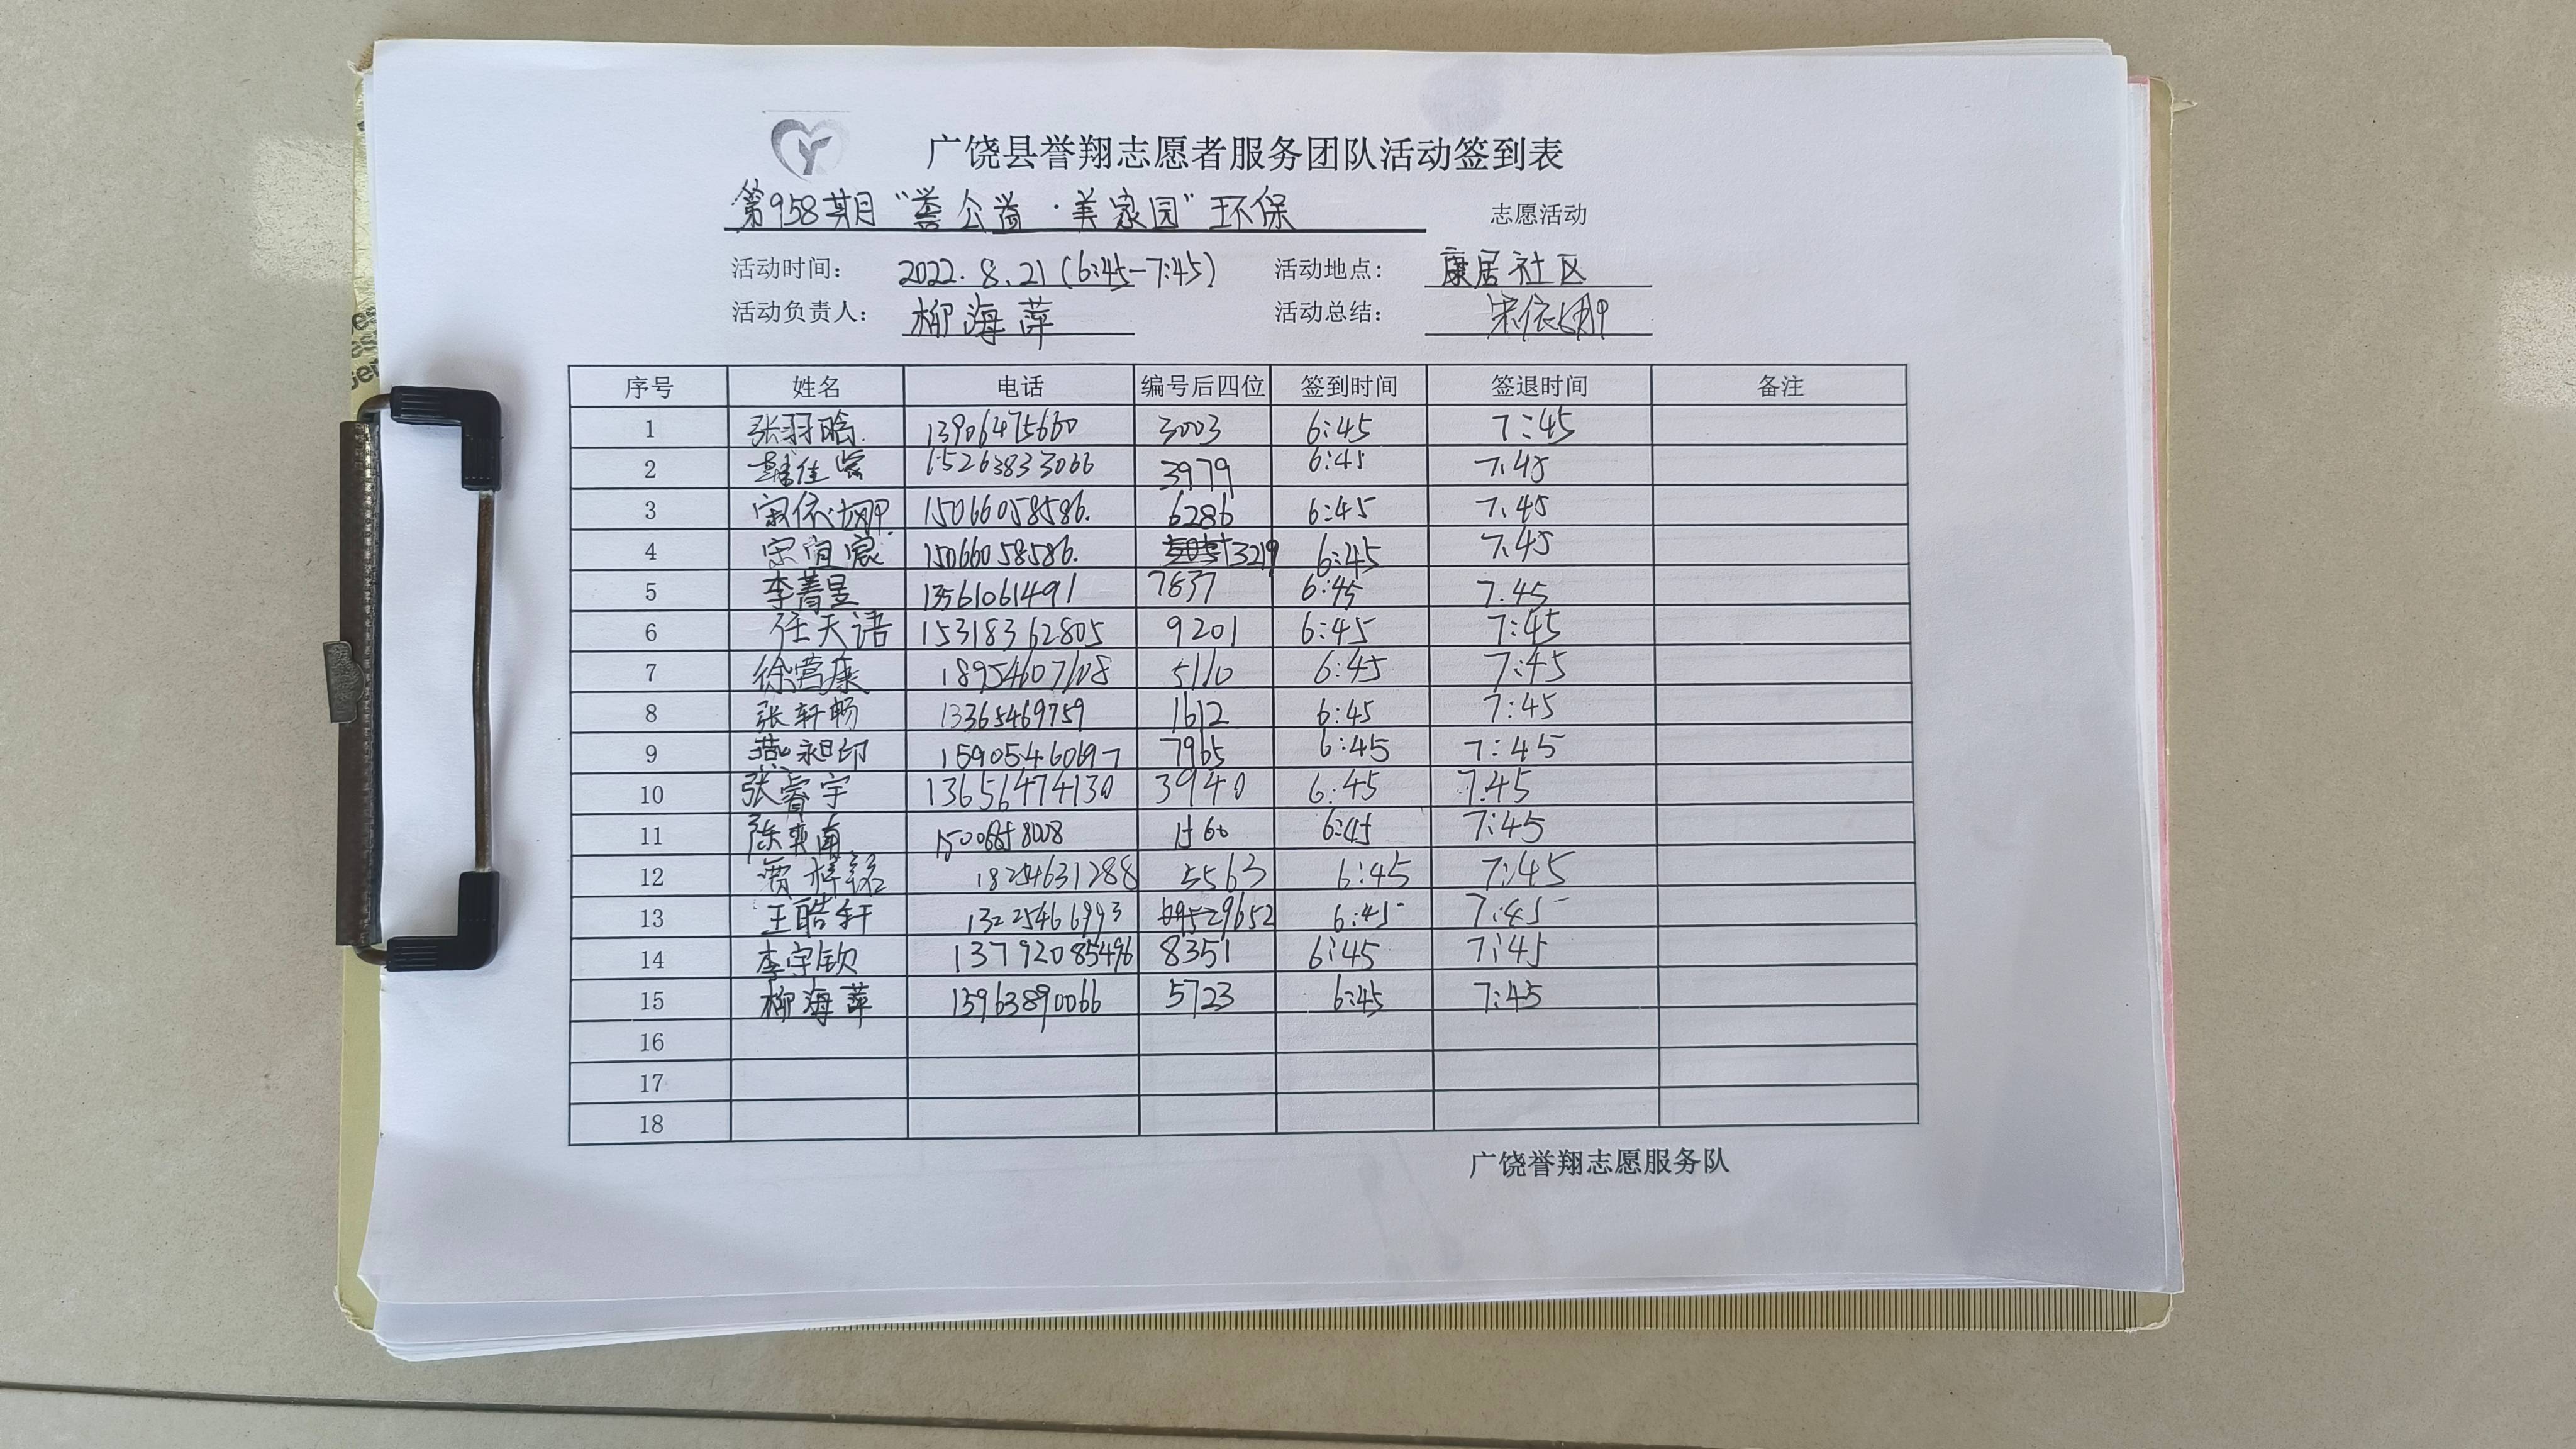 广饶县誉翔志愿者服务团队活动签到表
第958期“誉公益·美家园”环保 志愿活动
活动时间： 2022.8.21(6:45-7:45) 活动地点： 康居社区
活动负责人： 柳海萍 活动总结： 宋依娜
序号 姓名 电话 编号后四位 签到时间 签退时间 备注
1 张羽晗. 13906475660 3003 6:45 7:45
2 韩佳 15263833066 3979 6:45 7.45
3 宋依娜. 15066058586. 6286 6:45 7.45
4 宋宜宸 15066058586. 3219 6:45 7.45
5 李菁昱 13561061491 7837 6:45 7.45
6 任天语 15318362805 9201 6:45 7:45
7 徐营康 18954607108 5110 6:45 7:45
8 张轩畅 13365469759 1612 6:45 7:45
9 15905460697 7965 6:45 7:45
10 张睿宇 13656474130 3940 6:45 7.45
11 陈奕南 1560 6:45 7:45
12 贾梓铭 18254631288 5563 6:45 7:45
13 王皓轩 13225466993 9652 6:45 7:45
14 李宇钦 13792085496 8351 6:45 7:45
15 柳海萍 15963890066 5723 6:45 7:45
16
17
18
广饶誉翔志愿服务队